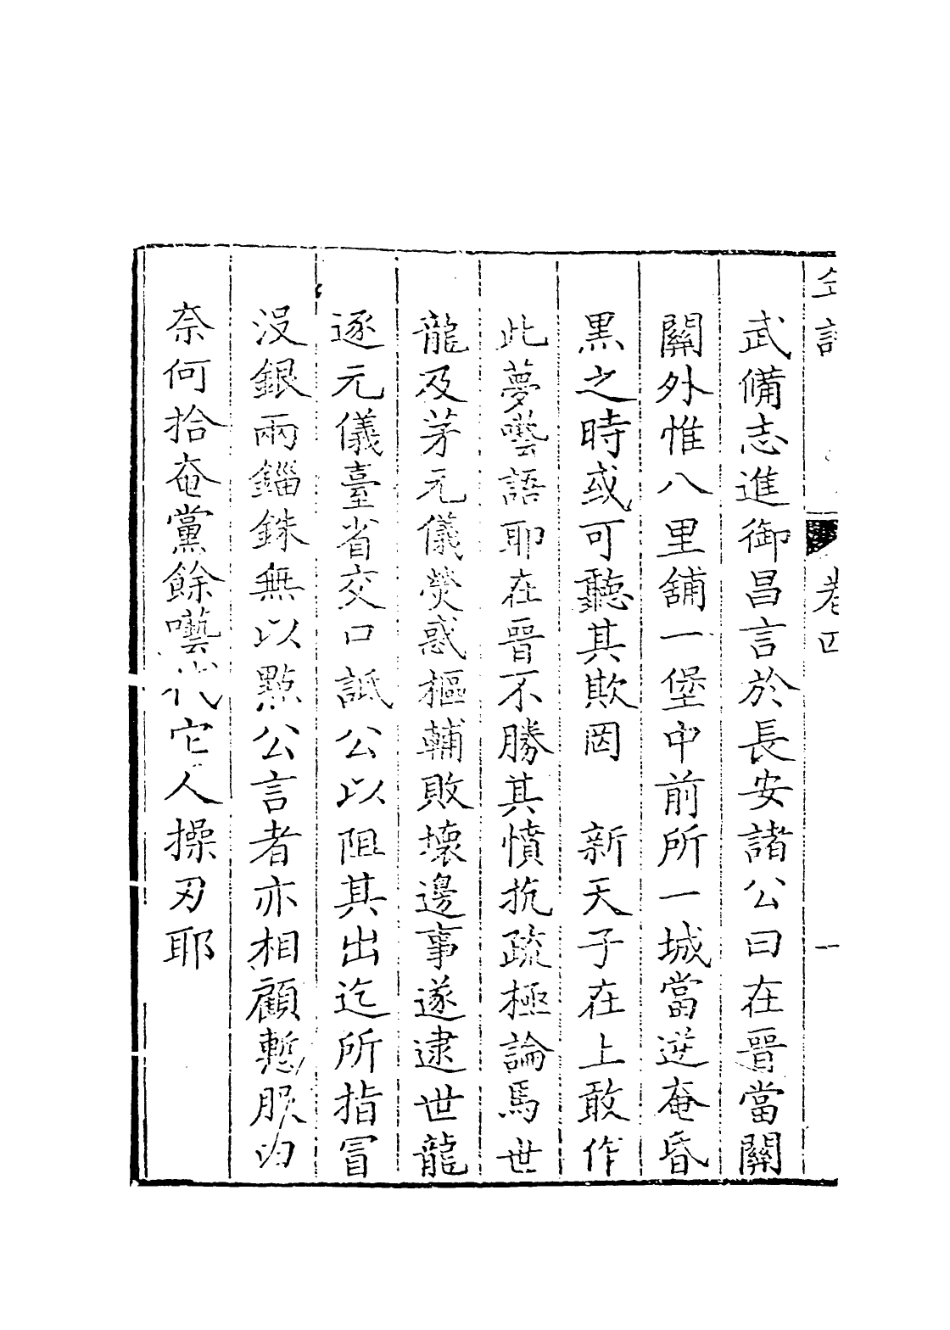 卷四
一
武備志進御昌言於長安諸公曰在晉當關
關外惟八里舖一堡中前所一城當逆奄昏
黑之時或可聽其欺罔　新天子在上敢作
此夢囈語耶在晉不勝其憤抗疏極論馬世
龍及茅元儀熒惑樞輔敗壞邊事遂逮世龍
逐元儀臺省交口詆公以阻其出迄所指冒
沒銀兩錙銖無以點公言者亦相顧慙服
奈何拾奄黨餘囈代它人操刃耶